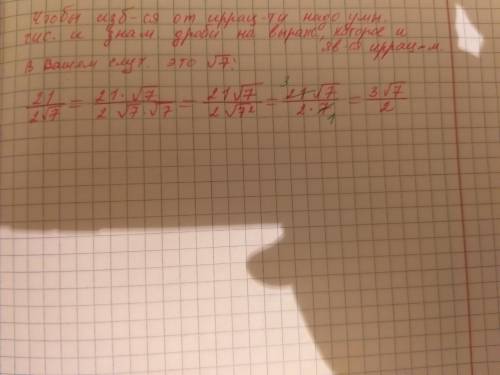 Чтобы изб-ся от иррац-ти надо умн.
чис. и знам дроби на выраж, которое и
яв-ся иррац-м.
В Вашем случ это √7.
21/2√7 = 21·√7/2√7·√7 = 21√7/2√7² = 21√7/2·7 = 3√7/2